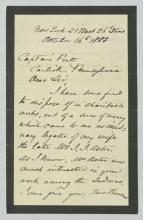 New York 21 West 26th Street
October 16th 1888
Captain Pratt
Carlisle, Pennsylvania
Dear Sir,
I have been said
to dispose of in charitable
works, out of a sum of money
which came to me as
legatee of my wife
the late Mrs J. J. Astor
As I know Mrs Astor was
much interested in your
work among the Indians
I can give you, Two Thousand